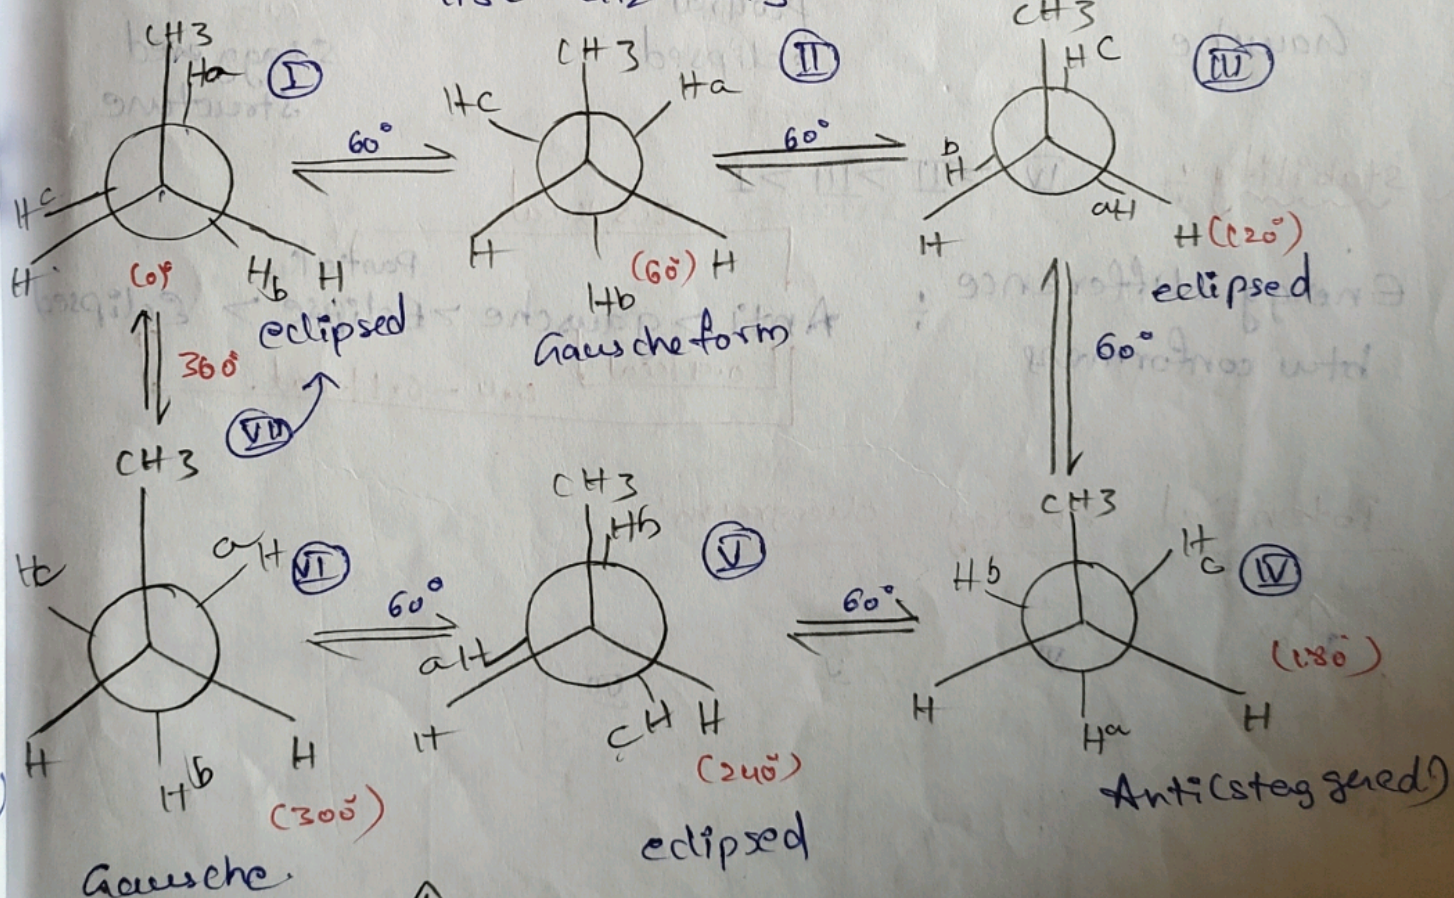 CH3
Ha
I
Hc
H
(0)°
Hb
H
eclipsed
60°
CH3
II
Hc
Ha
H
(60°)
H
Hb
Gausche form
60°
CH3
HC
III
b
H
aH
H
H (120°)
eclipsed
360°
VII
60°
CH3
Hc
aH
VI
H
Hb
H
(300°)
Gausche
60°
CH3
Hb
V
aH
H
cH
H
(240°)
eclipsed
60°
CH3
Hb
Hc
IV
(180°)
H
Ha
H
Anti(staggered)